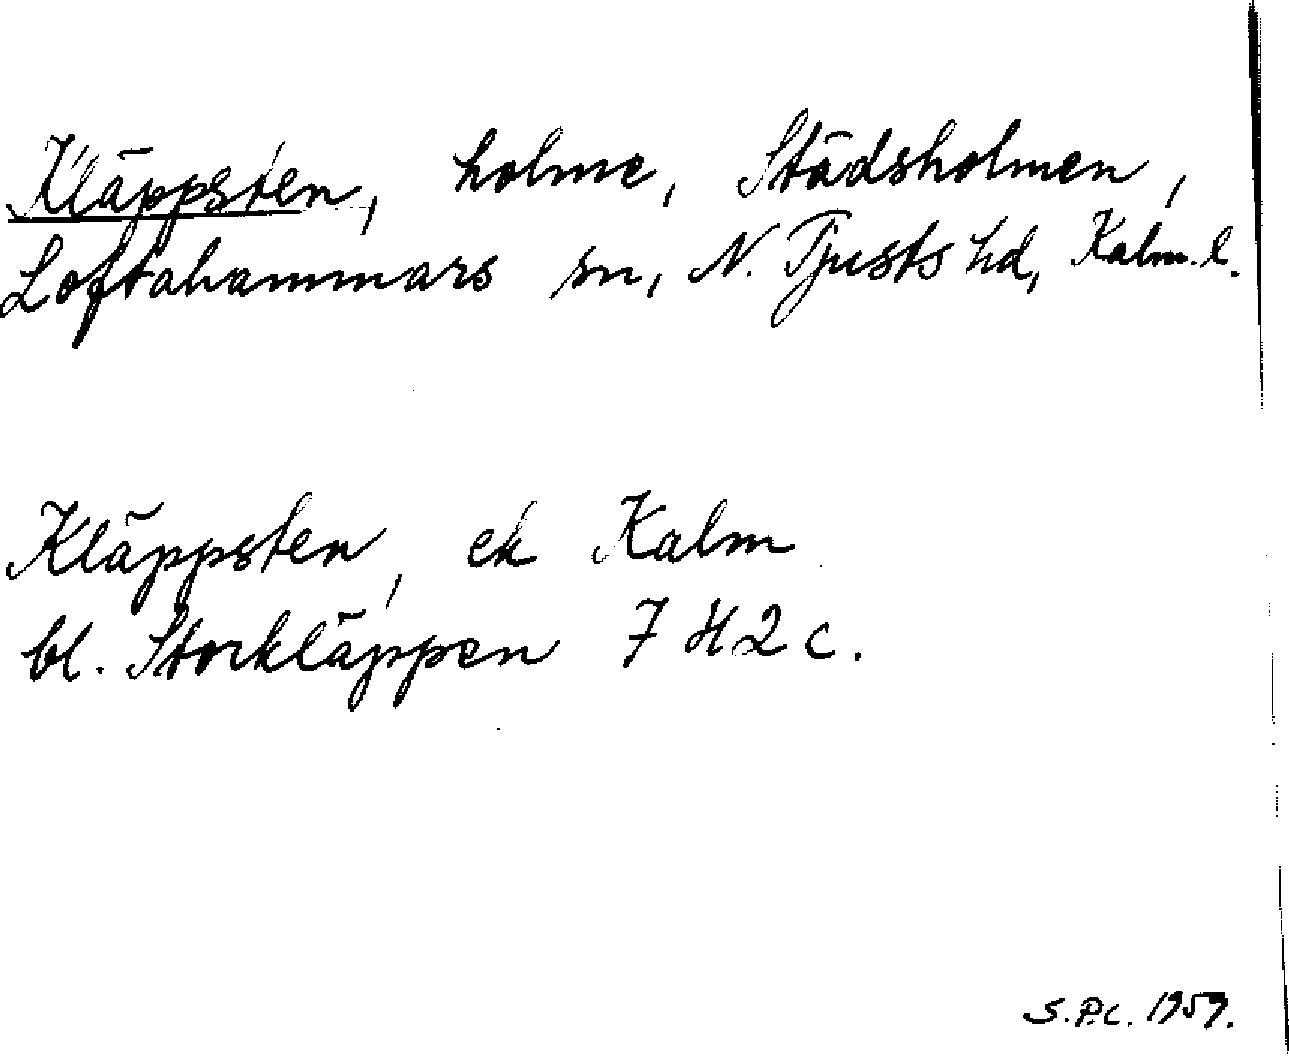 Kläppsten, holme, Städsholmen,
Loftahammars sn, N. Tjusts hd, Kalm. l.
Kläppsten, ek Kalm
bl. Storkläppen 7 H 2 c.
S.P.C. 1959.